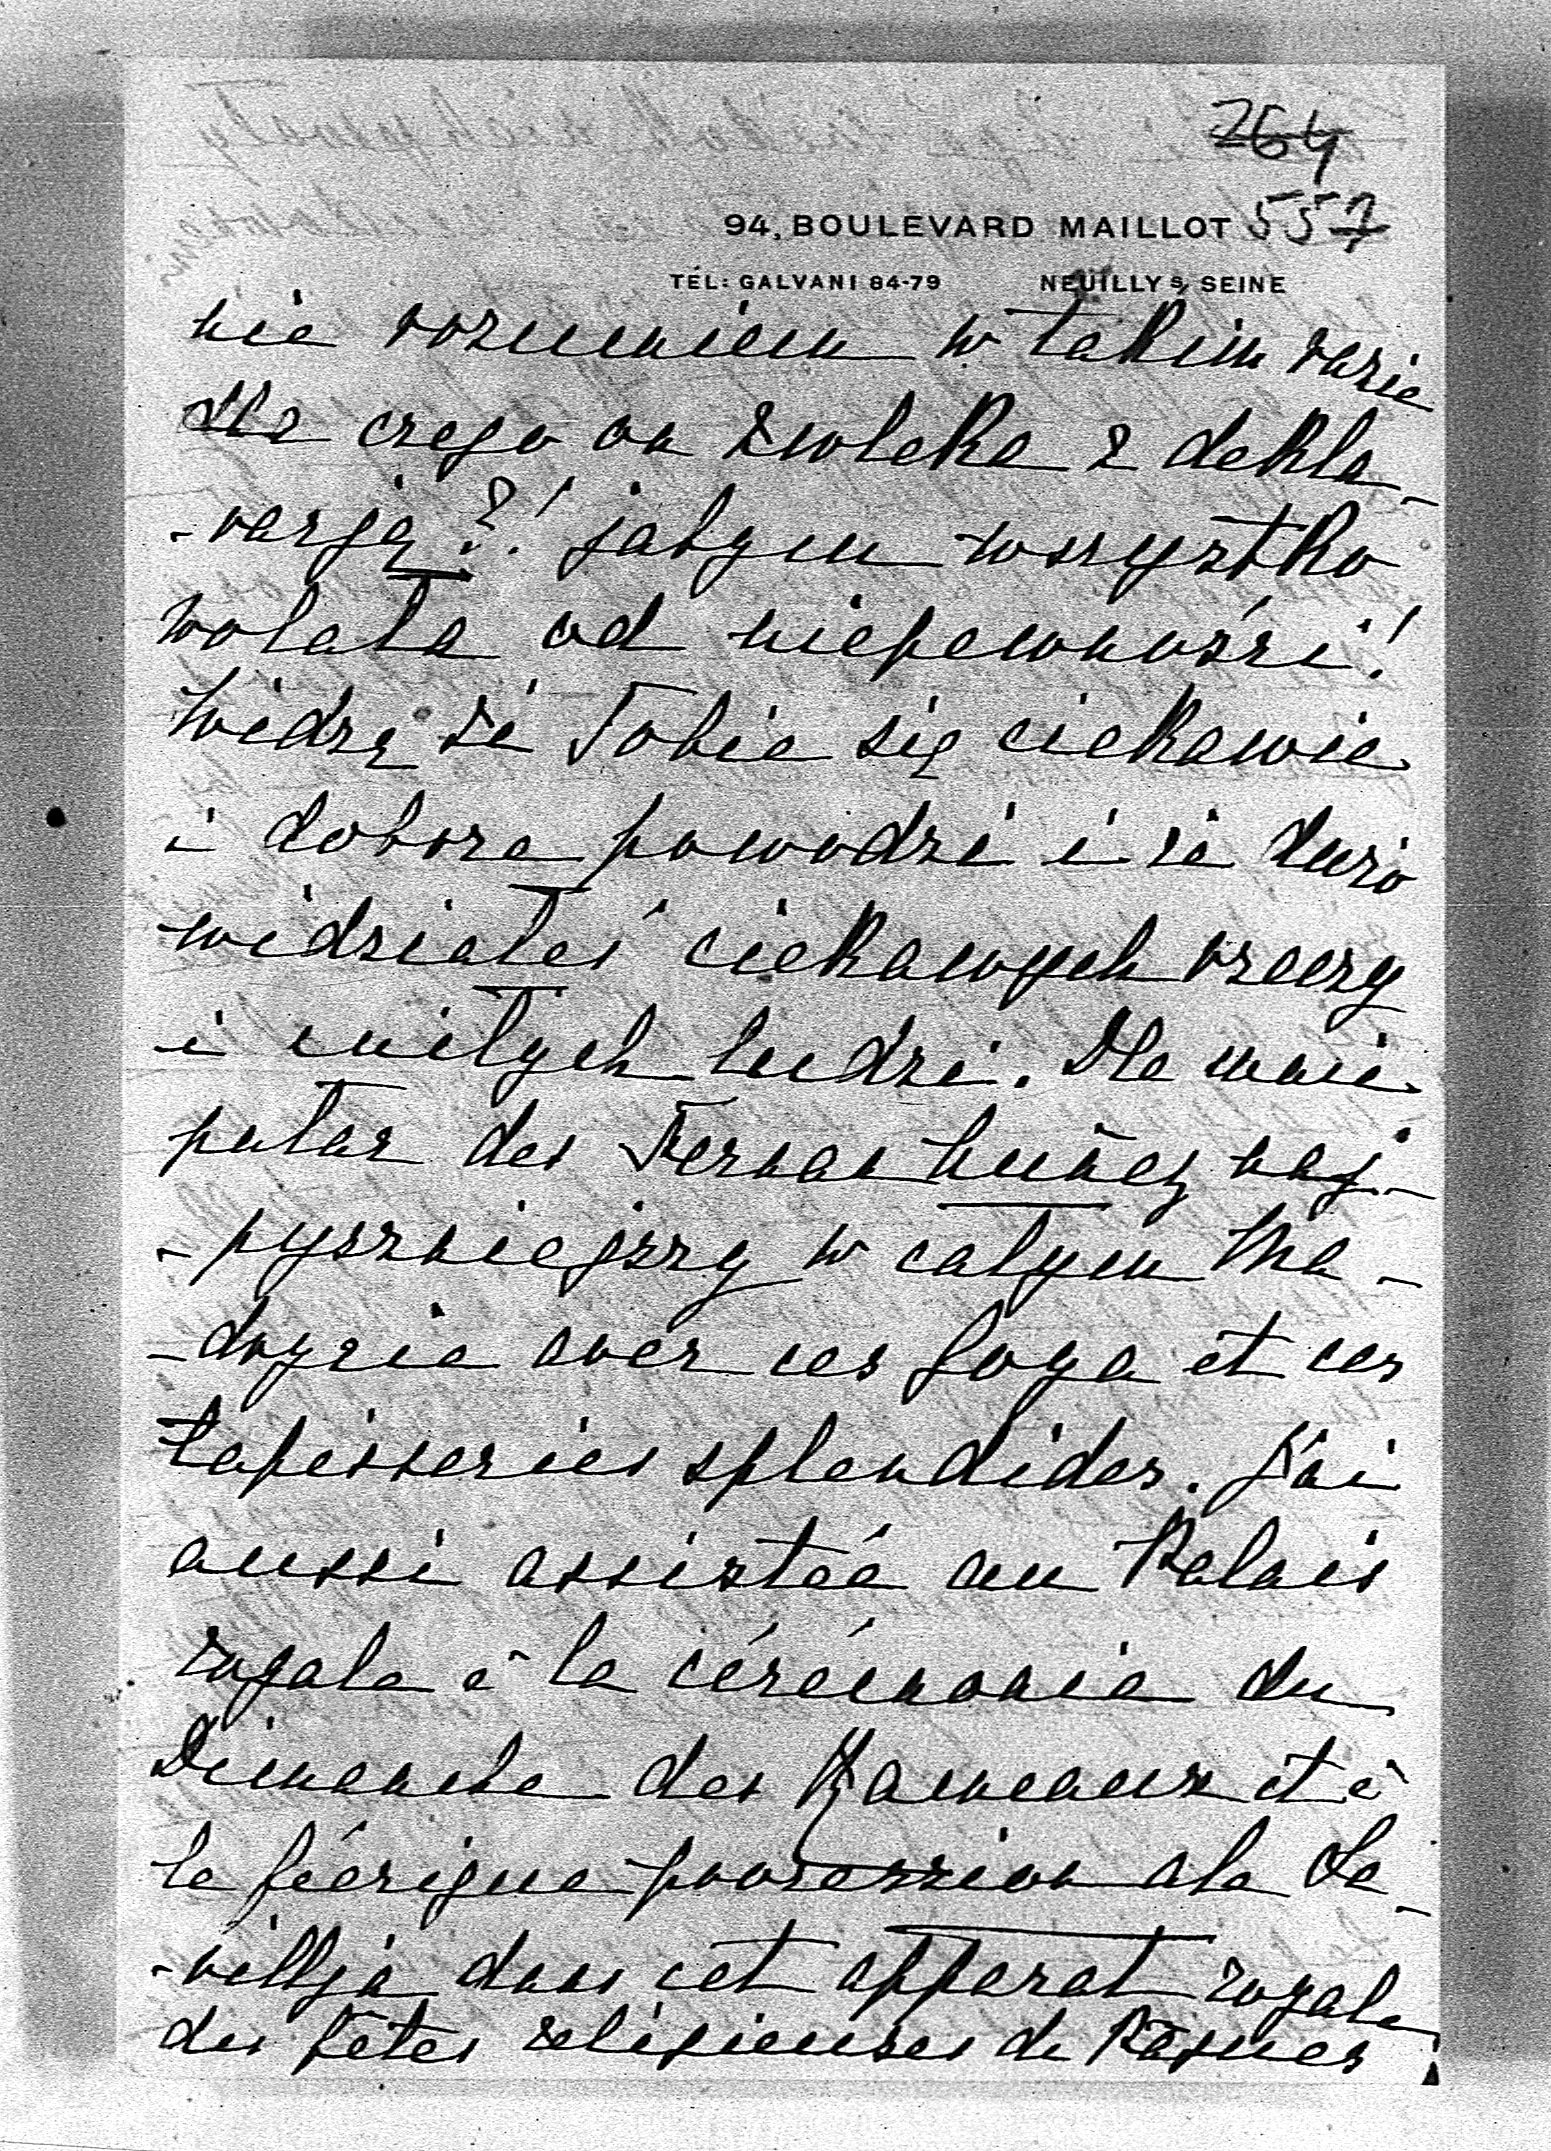 264
94, BOULEVARD MAILLOT 557
TÉL: GALVANI 84-79 NEUILLY S/ SEINE
nie rozumiem w takim razie
dla czego on zwleka z dekla-
-racją?! jabym wszystko
wolała od niepewności!
Widzę że Tobie się ciekawie
i dobrze powodzi i że dużo
widziałeś ciekawych rzeczy
i miłych ludzi. Dla mnie
pałac des Fernan Nuñez naj-
-pyszniejszy w całym Ma-
-drycie avec ces Goya et ces
tapisseries splendides. J'ai
aussi assistée au Palais
royale à la cérémonie du
Dimanche des Rameaux et à
la féerique procession à la Se-
-villja dans cet apparat royale
des fêtes religieuses de Pâques